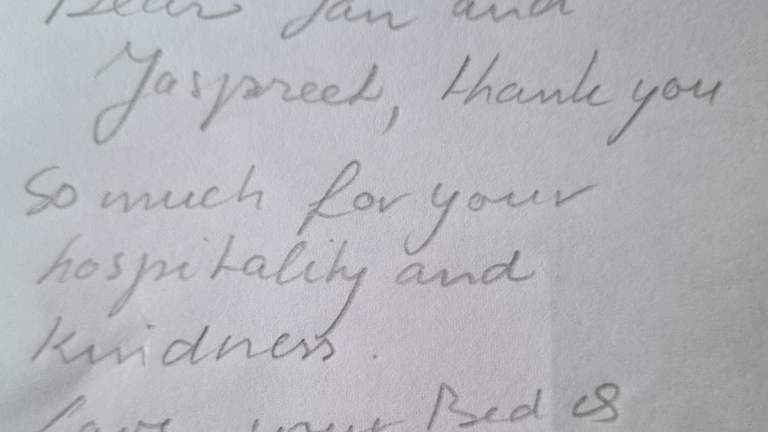 Dear Jan and
Jaspreet, thank you
so much for your
hospitality and
kindness.
Love your Bed &